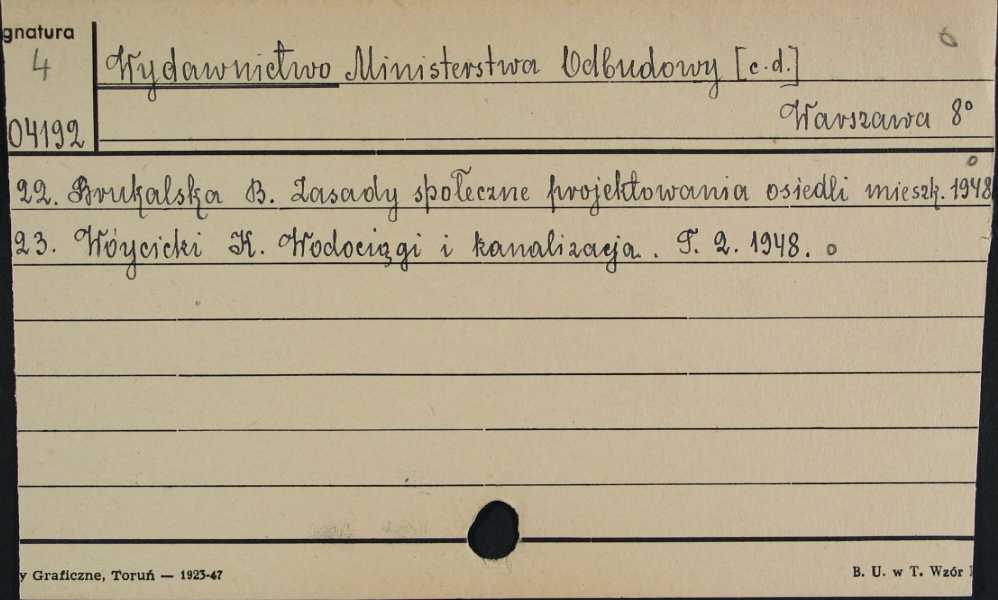 gnatura
4 Wydawnictwo Ministerstwa Odbudowy [c.d.]
Warszawa 8°
04192
22. Brukalska B. Zasady społeczne projektowania osiedli mieszk. 1948
23. Wóycicki K. Wodociągi i kanalizacja. T. 2. 1948.
y Graficzne, Toruń — 1923-47
B. U. w T. Wzór